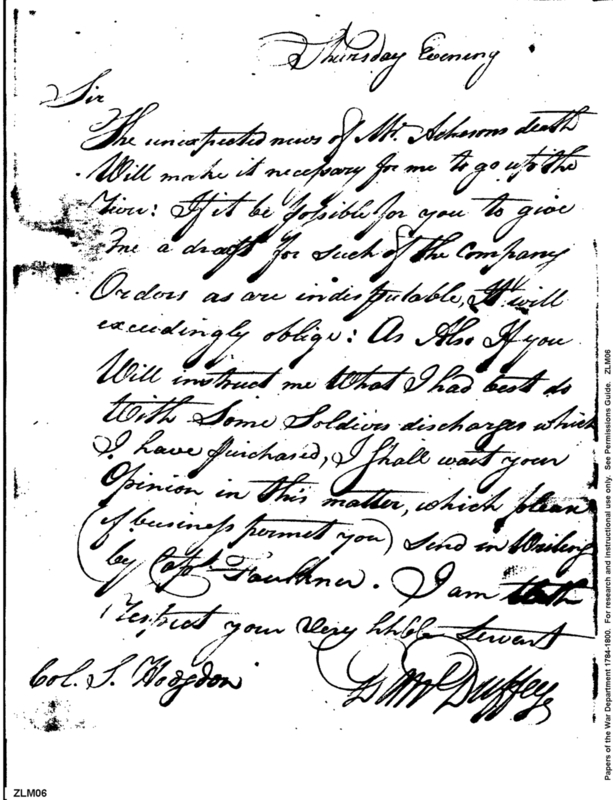 Thursday Evening
Sir
The unexpected news of Mr. Achesons death
Will make it necessary for me to go up to the
: If it be possible for you to give
me a draft for such of the Company
Orders as are indisputable, It will
exceedingly oblige: As Also If you
Will instruct me What I had best do
With Some Soldiers discharges which
I have purchased, I shall wait your
Opinion in this matter, which please
(if business permit you) send in Writing
by Capt. Faulkner. I am with
Respect your Very hhble Servant
D McDuffey
Col. S. Hodgdon
Papers of the War Department 1784-1800. For research and instructional use only. See Permissions Guide. ZLM06
ZLM06